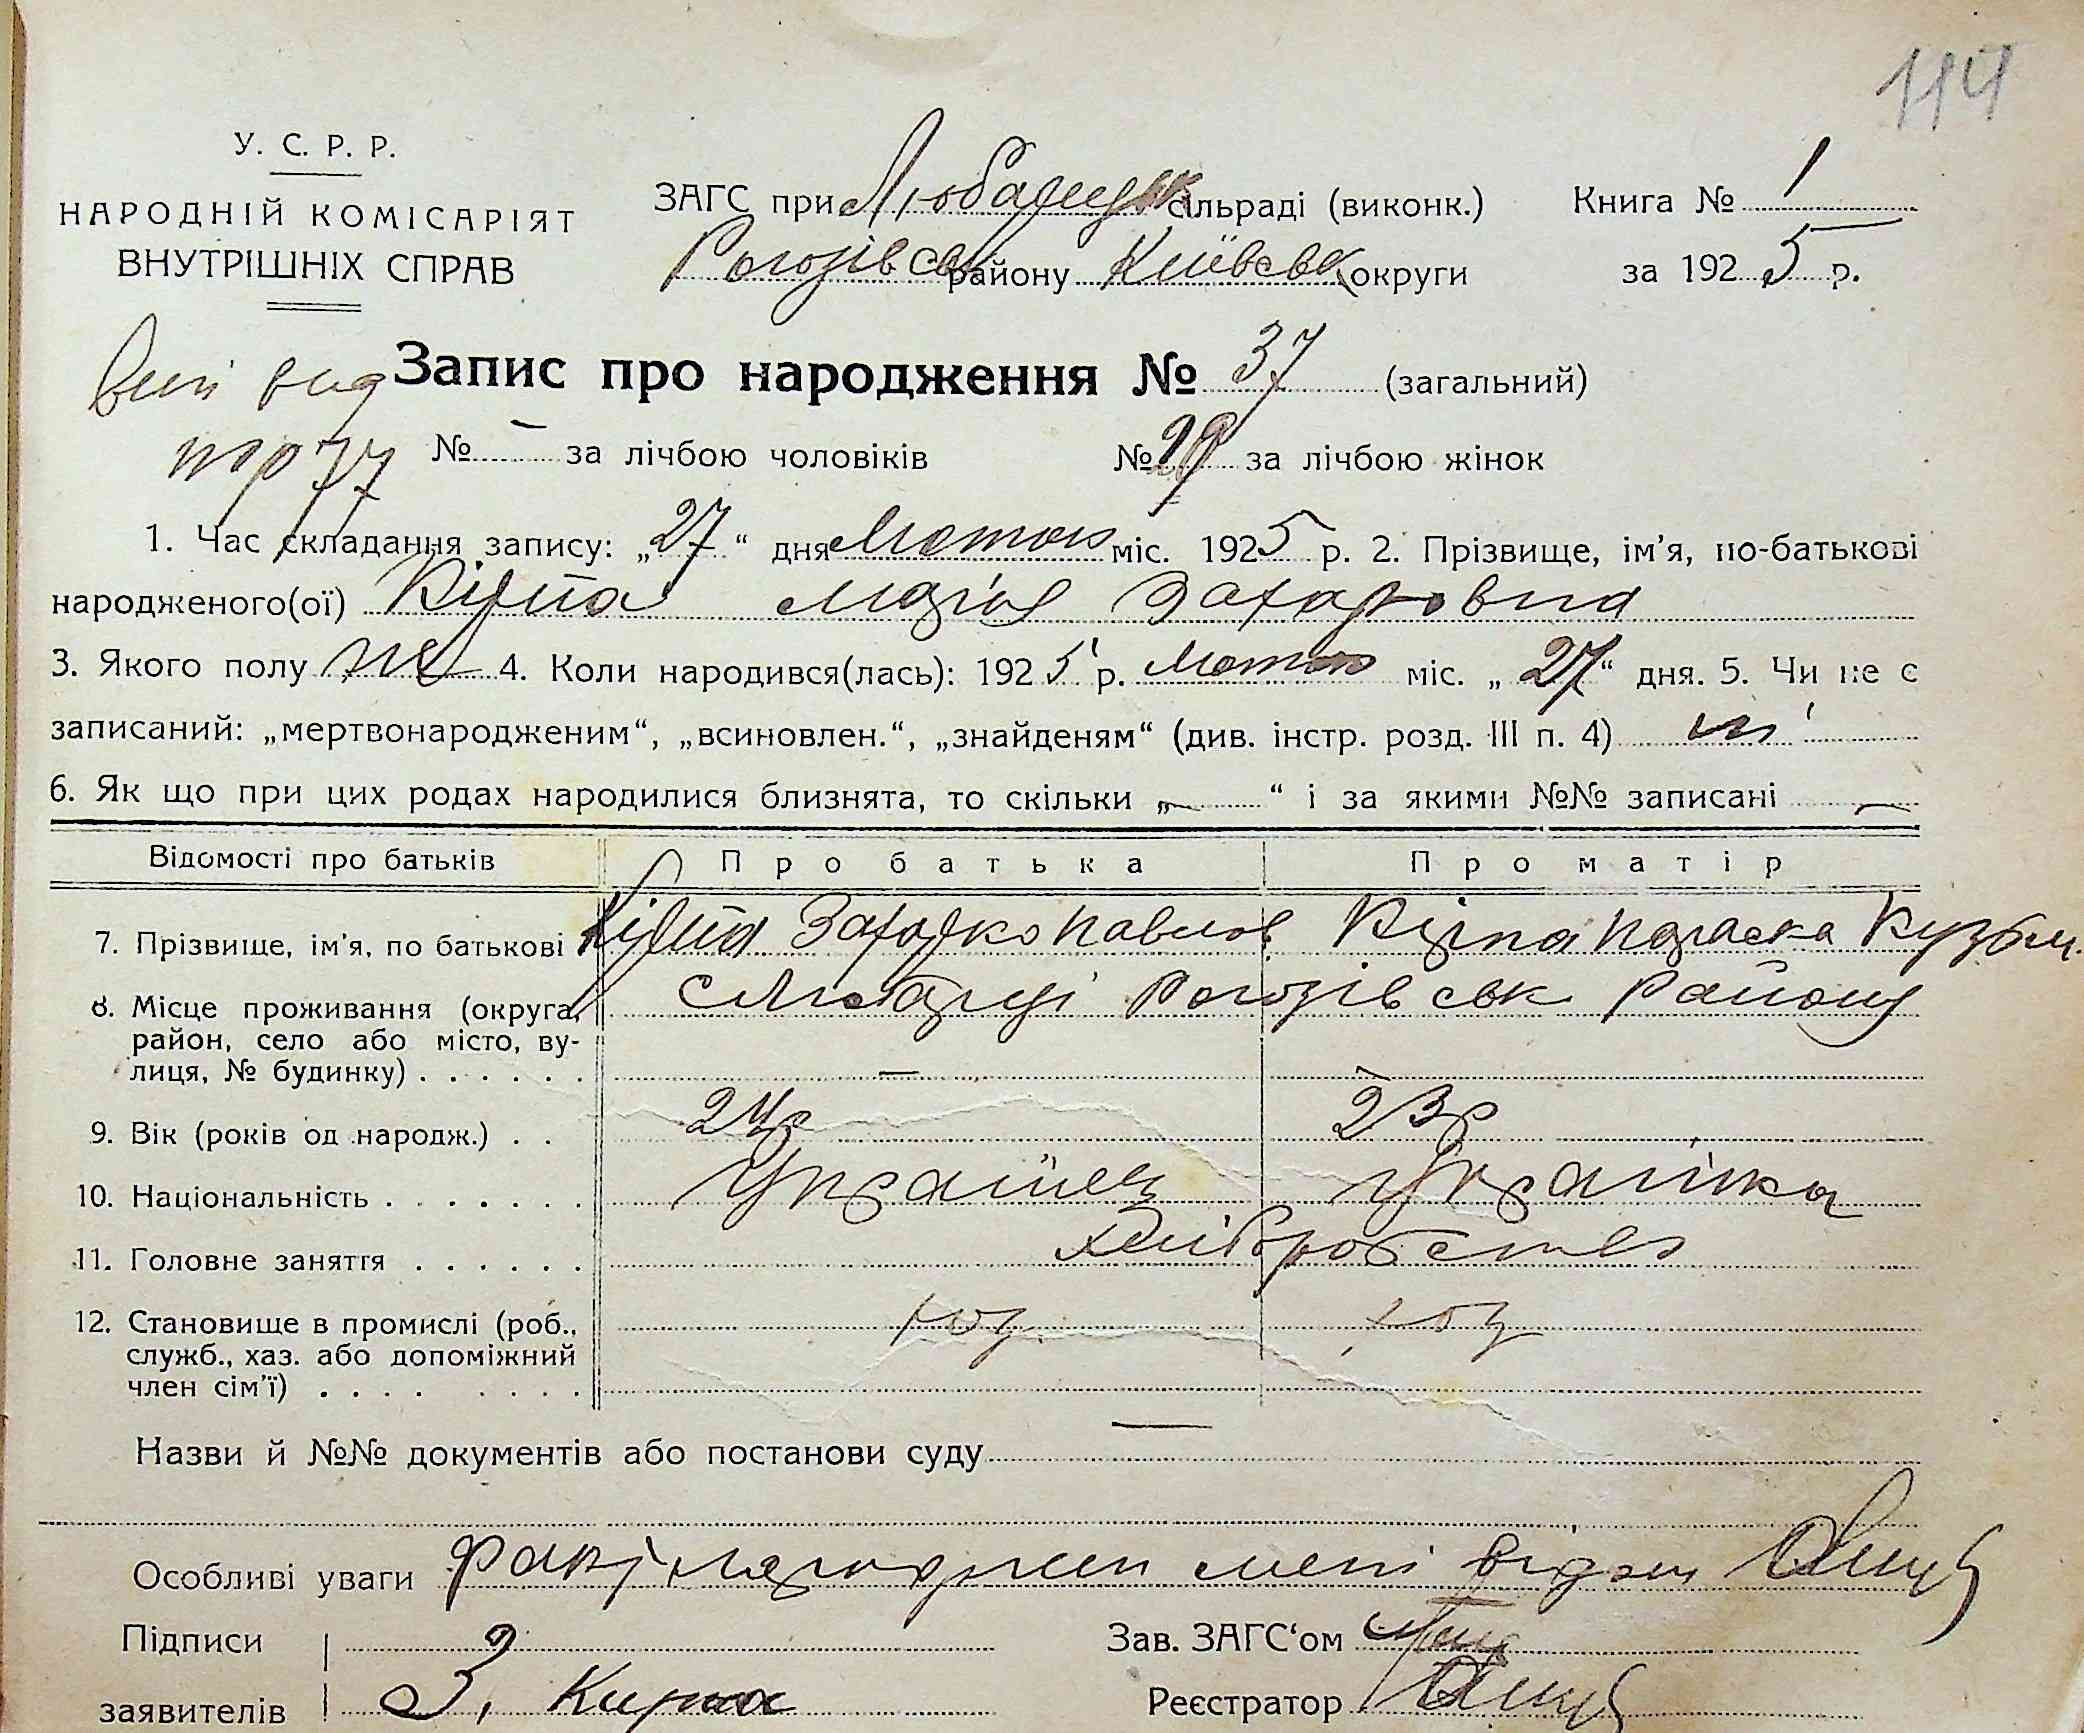 114
У. С. Р. Р.
НАРОДНІЙ КОМІСАРІЯТ
ВНУТРІШНІХ СПРАВ
ЗАГС при Любарецьк сільраді (виконк.) Книга № 1
Рогозівськ району Київськ округи за 1925 р.
Запис про народження № 37 (загальний)
стор 77 № – за лічбою чоловіків № 19 за лічбою жінок
1. Час складання запису: „27“ дня Лютого міс. 1925 р. 2. Прізвище, ім'я, по-батькові
народженого(ої) Кірпа Марія Захаровна
3. Якого полу жін 4. Коли народився(лась): 1925 р. Лютого міс. „27“ дня. 5. Чи не є
записаний: „мертвонародженим“, „всиновлен.“, „знайденям“ (див. інстр. розд. III п. 4) ні
6. Як що при цих родах народилися близнята, то скільки „—“ і за якими №№ записані —
Відомості про батьків Про батька Про матір
7. Прізвище, ім'я, по батькові Кірпа Захарко Павлов Кірпа Параска Кузьм.
8. Місце проживання (округа, с Любарці Рогозівськ Району
район, село або місто, ву-
лиця, № будинку) . . . . . . —
9. Вік (років од народж.) . . 24р 23р
10. Національність . . . . . . . Українец Українка
11. Головне заняття . . . . . . хліборобство
12. Становище в промислі (роб., хоз. хоз
служб., хаз. або допоміжний
член сім'ї) . . . . . . . .
Назви й №№ документів або постанови суду —
Особливі уваги мені
Підписи Зав. ЗАГС'ом
заявителів З. Кирпа Реєстратор